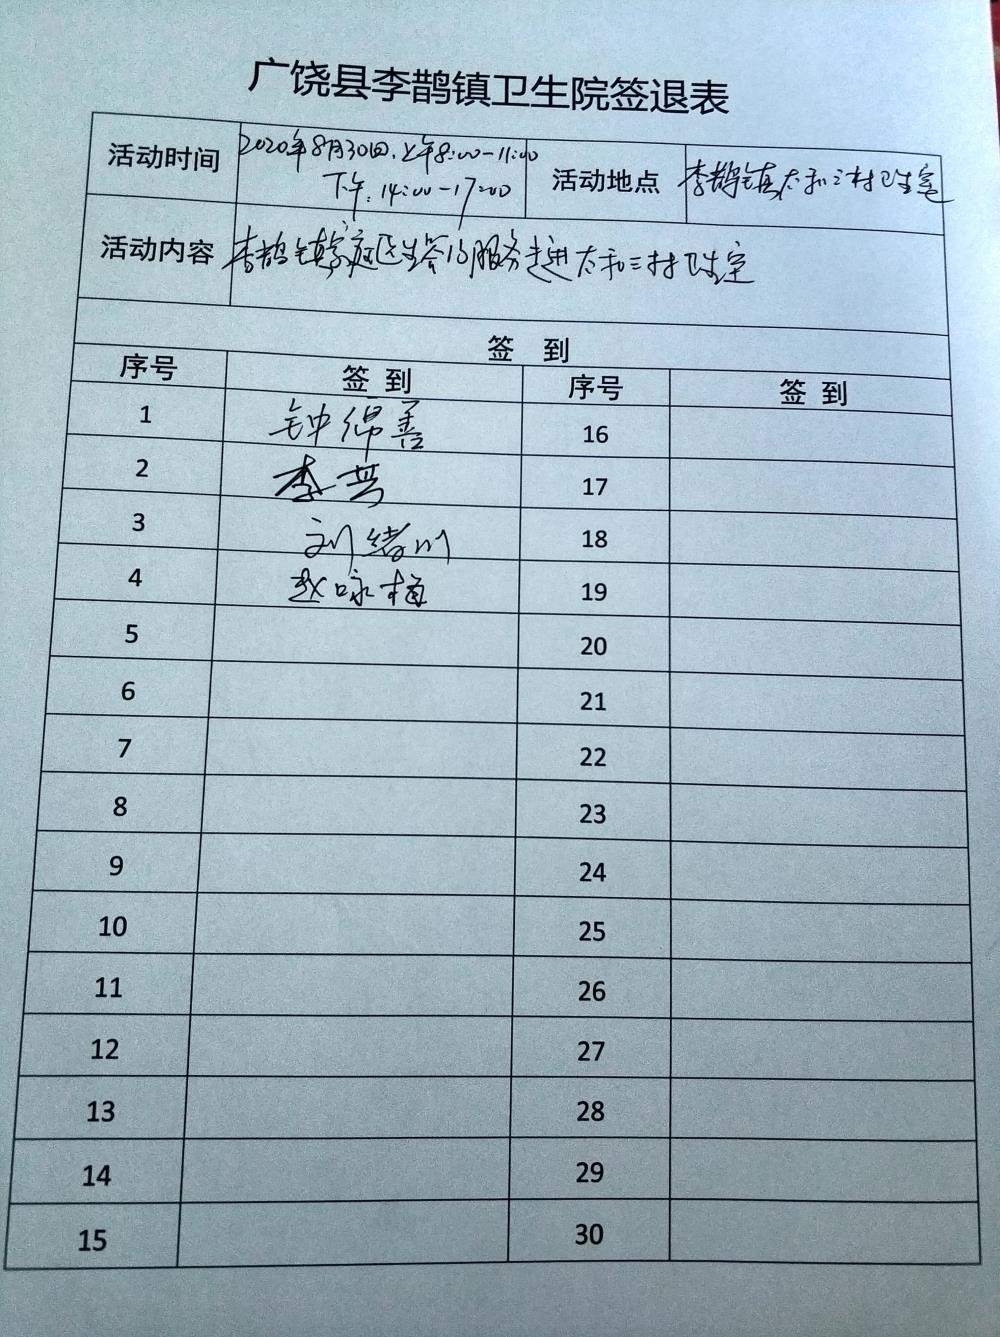 广饶县李鹊镇卫生院签退表
活动时间 2020年8月30日.上午8:00-11:00 活动地点 李鹊镇太和三村卫生室
下午:14:00-17:00
活动内容 李鹊镇家庭医生签约服务走进太和三村卫生室
签 到
序号 签 到 序号 签 到
1 钟绵善 16
2 李芸 17
3 刘绪川 18
4 赵咏梅 19
5 20
6 21
7 22
8 23
9 24
10 25
11 26
12 27
13 28
14 29
15 30